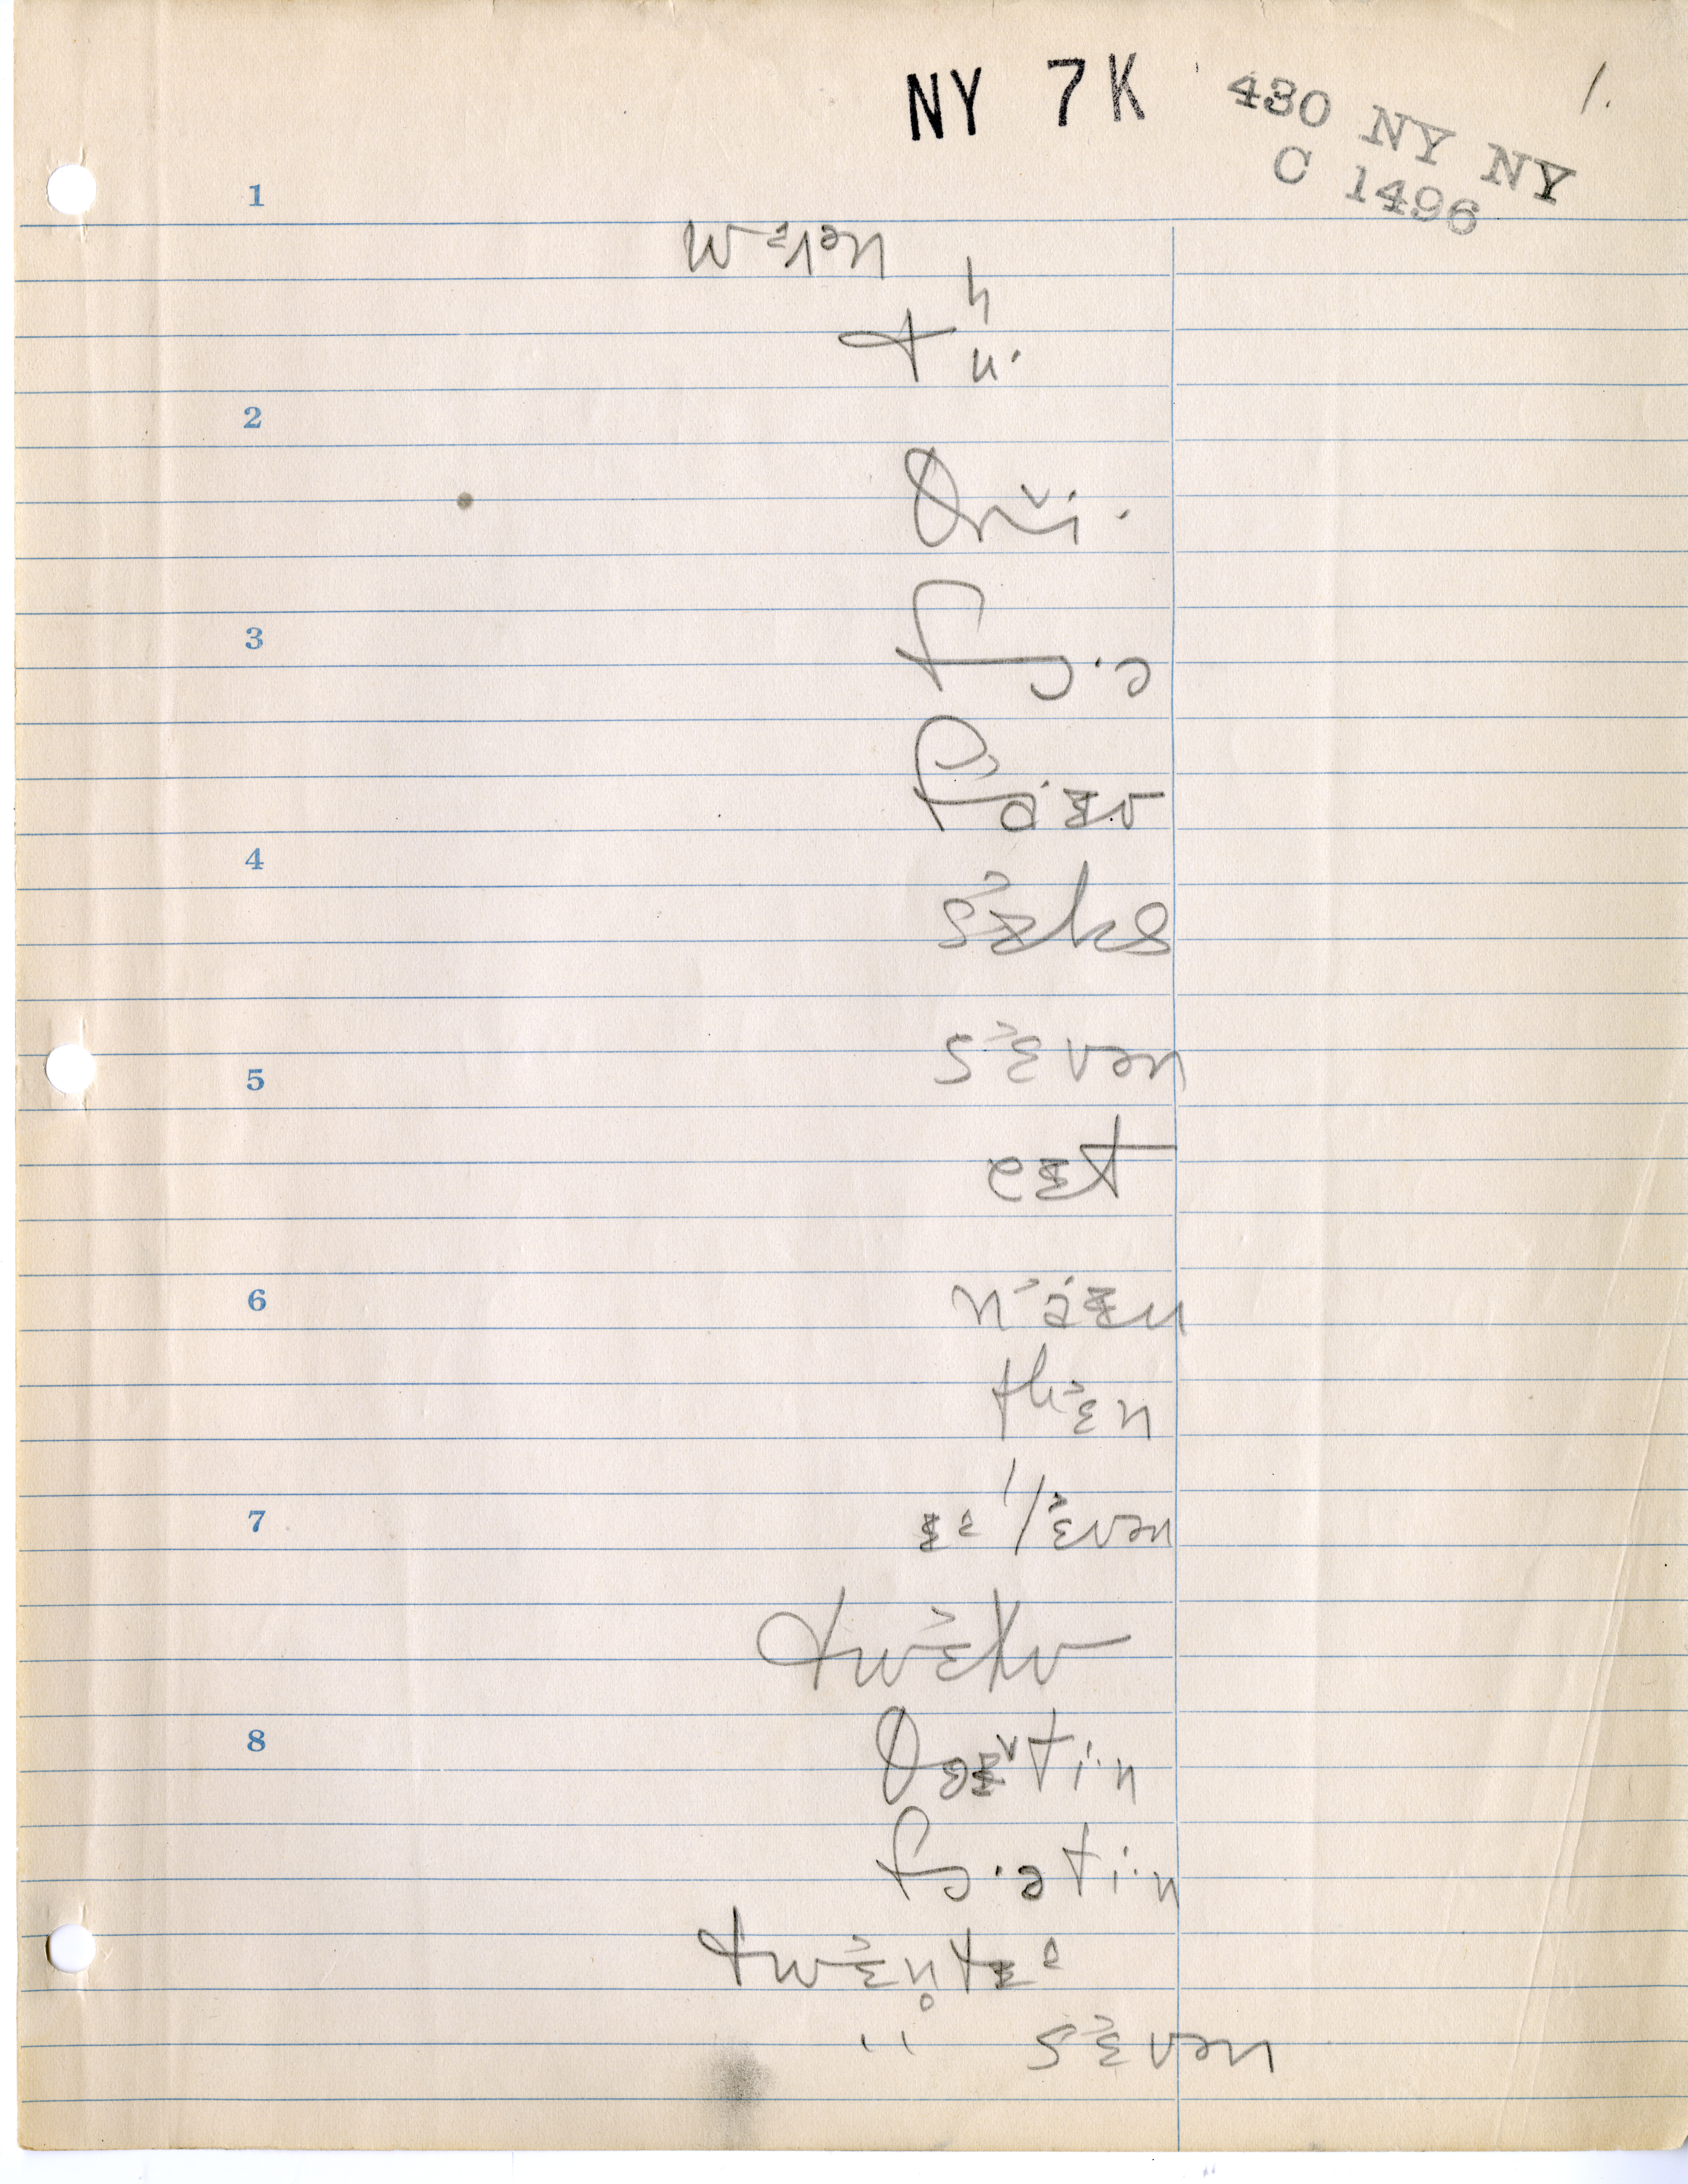 NY 7K 430 NY NY 1.
C 1496
1
2
θrɪ̆i·
3
fɔ·ə
fa·ɪv
4
sɪ˃ks
sɛ˃vən
5
eɪt
6
na˃·ɪn
thɛ˃n
7
ɪ'lɛ˃vən
twɛ˃lv
8
θɜɪ̆ti·n
fɔ·əti·n
twɛ˃n̥tɪ
" sɛ˃vən